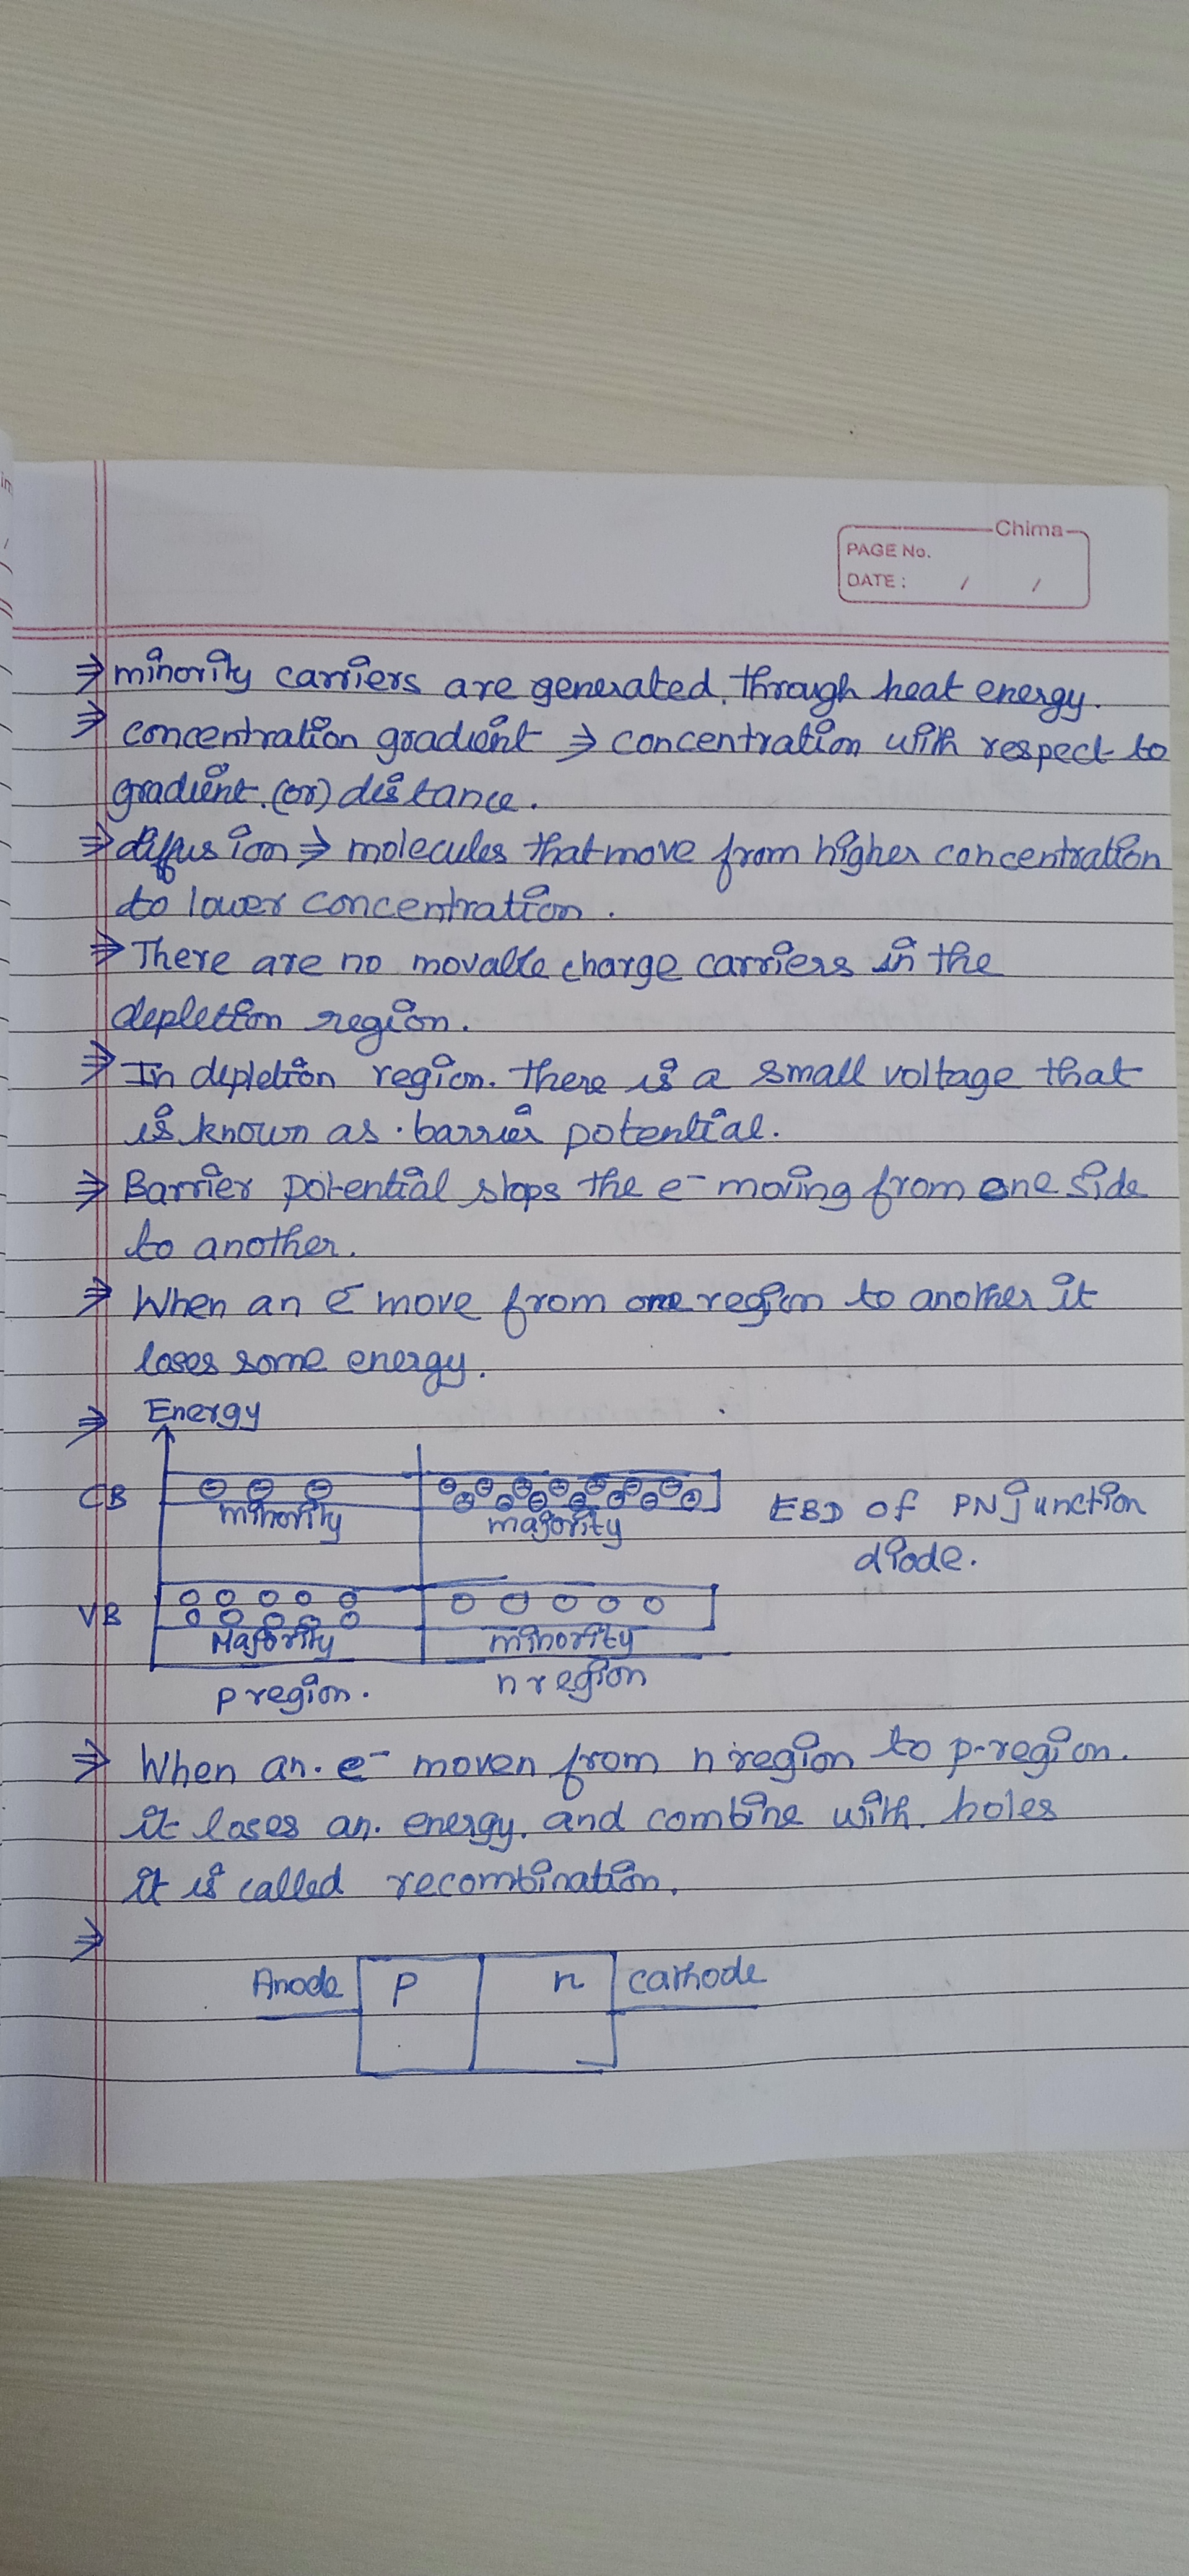 Chima
PAGE No.
DATE : / /
⇒ minority carriers are generated through heat energy.
⇒ concentration gradient ⇒ concentration with respect to
gradient (or) distance.
⇒ diffusion ⇒ molecules that move from higher concentration
to lower concentration.
⇒ There are no movable charge carriers in the
depletion region.
⇒ In depletion region. there is a small voltage that
is known as . barrier potential.
⇒ Barrier potential stops the e⁻ moving from one side
to another.
⇒ When an e⁻ move from one region to another it
loses some energy.
⇒ Energy
CB minority majority EBD of PN junction
diode.
VB Majority minority
p region. n region
⇒ When an. e⁻ moven from n region to p-region.
it loses an. energy. and combine with. holes
it is called recombination.
⇒
Anode p n cathode